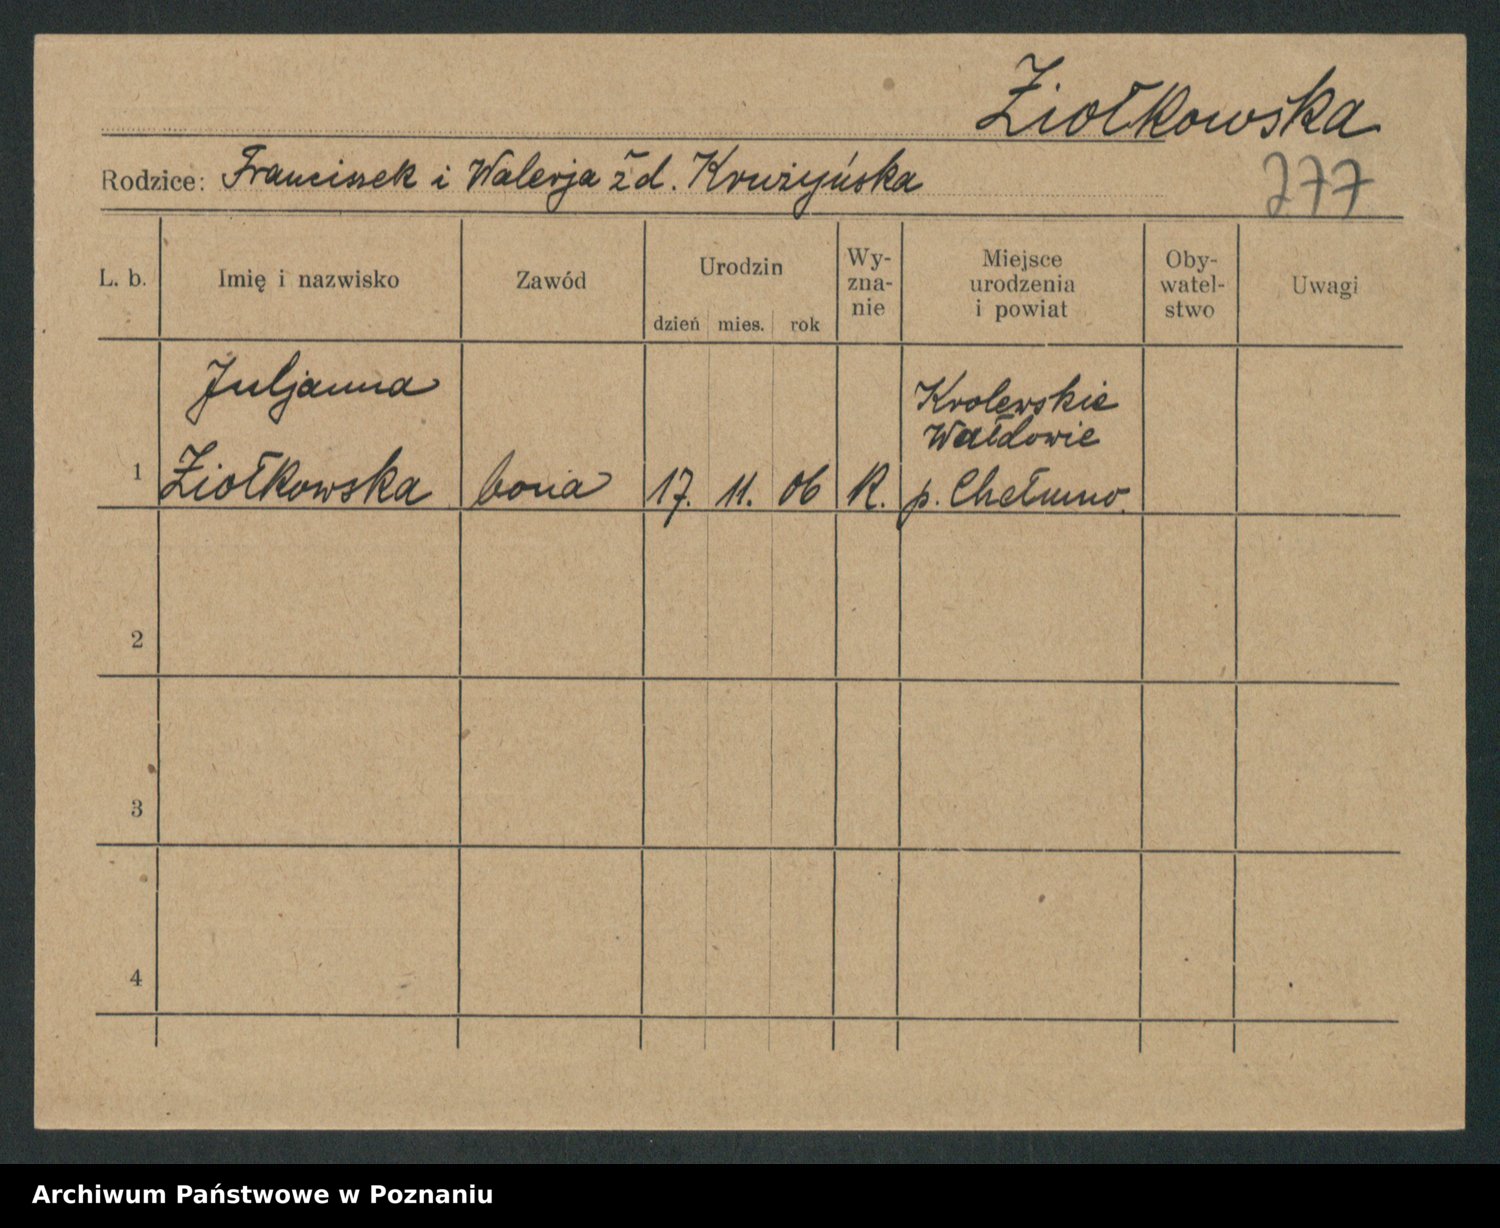 Ziołkowska
Rodzice: Franciszek i Walerja zd. Krużyńska
277
L. b. Imię i nazwisko Zawód Urodzin dzień mies. rok Wy-zna-nie Miejsce urodzenia i powiat Oby-watel-stwo Uwagi
Juljanna
Krolewskie
Wałdowie
1 Ziołkowska bona 17. 11. 06 R. p. Chełmno.
2
3
4
Archiwum Państwowe w Poznaniu